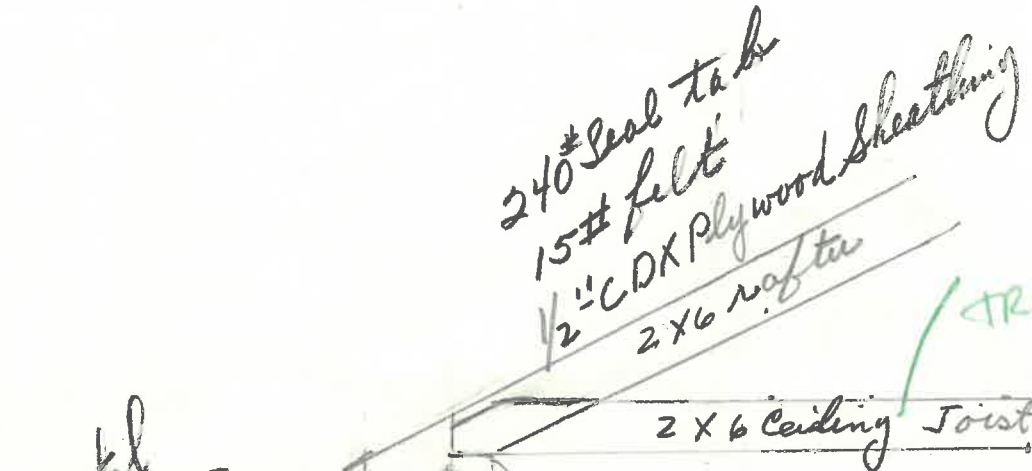 240# Seal tab
15# felt
1/2" CDX Plywood Sheathing
2x6 rafter
2 X 6 Ceiling Joist